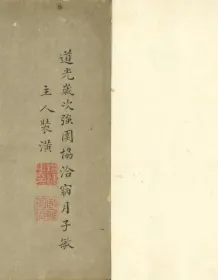 道光歲次強圉協洽窉月子敬
主人裝潢